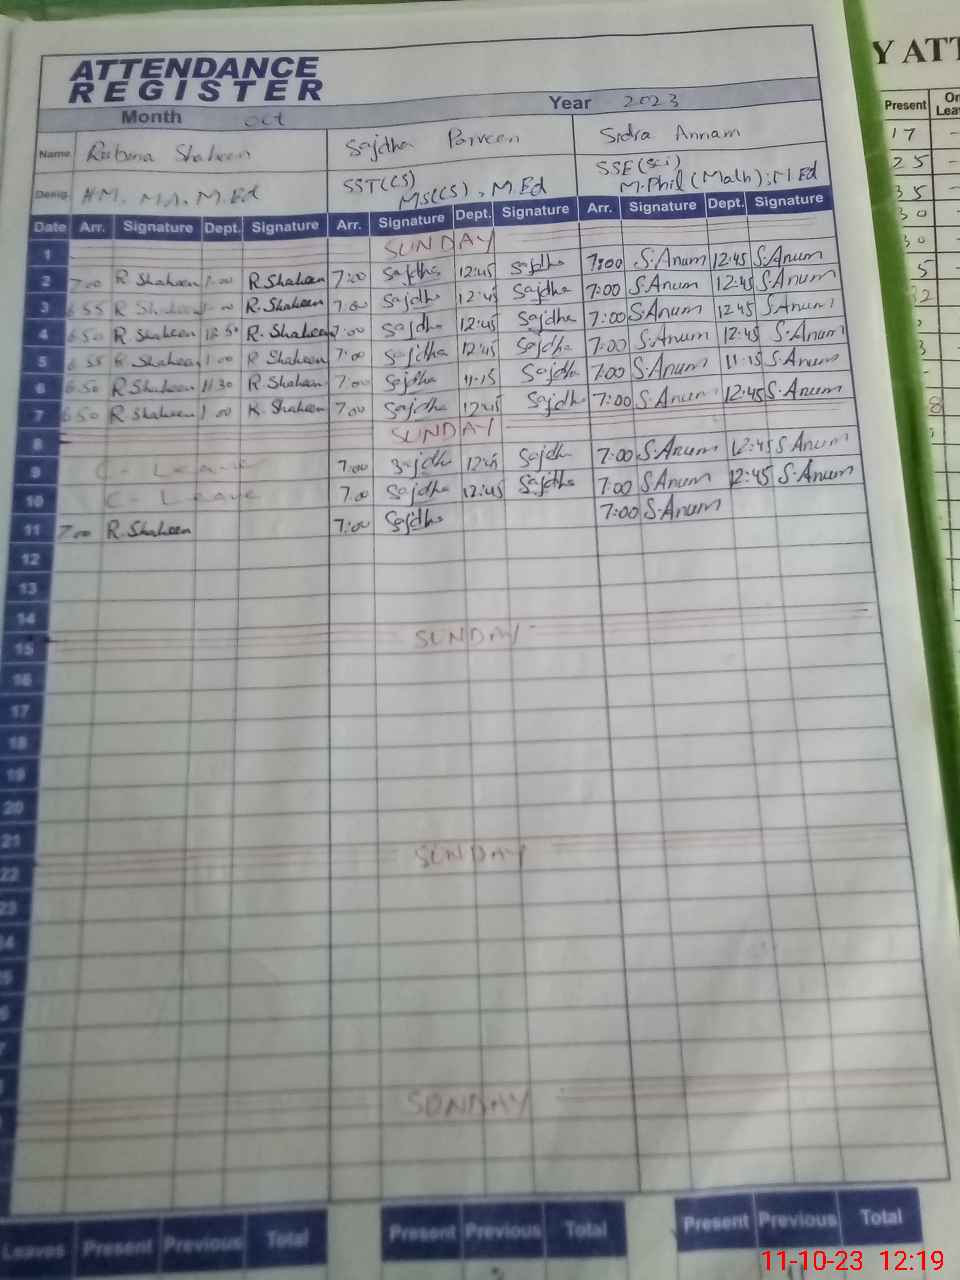 ATTENDANCE
REGISTER
Y ATT
Month Oct Year 2023
Present
Name Rubina Shaheen Sajdha Parveen Sidra Annam
Desig. HM. M.A. M.Ed SST(CS) MS(CS), M.Ed SSE(Sci) M.Phil (Math); M.Ed
Date Arr. Signature Dept. Signature Arr. Signature Dept. Signature Arr. Signature Dept. Signature
1 SUNDAY
2 7:00 R Shaheen 1:00 R.Shaheen 7:00 Sajdha 12:45 Sajdha 7:00 S.Anum 12:45 S.Anum
3 6 55 R Shaheen R.Shaheen 7:00 Sajdha 12:45 Sajdha 7:00 S.Anum 12:45 S.Anum
4 6 50 R. Shaheen 12:50 R. Shaheen 7:00 Sajdha 12:45 Sajdha 7:00 S.Anum 12 45 S.Anum
5 6 55 R Shaheen 1 00 R Shaheen 7:00 Sajdha 12:45 Sajdha 7:00 S.Anum 12:45 S.Anum
6 6 50 R Shaheen 11 30 R. Shaheen 7:00 Sajdha 11:15 Sajdha 7:00 S.Anum 11:15 S.Anum
7 6 50 R Shaheen 1 00 R. Shaheen 7:00 Sajdha 12:45 Sajdha 7:00 S.Anum 12:45 S.Anum
8 SUNDAY
9 C- Leave 7:00 Sajdha 12:45 Sajdha 7:00 S.Anum 12:45 S.Anum
10 C- Leave 7:00 Sajdha 12:45 Sajdha 7:00 S.Anum 12:45 S.Anum
11 7:00 R.Shaheen 7:00 Sajdha 7:00 S.Anum
12
13
14
15 SUNDAY
16
17
18
19
20
21
22 SUNDAY
23
SUNDAY
Leaves Present Previous Total Present Previous Total Present Previous Total
17
25
35
11-10-23 12:19